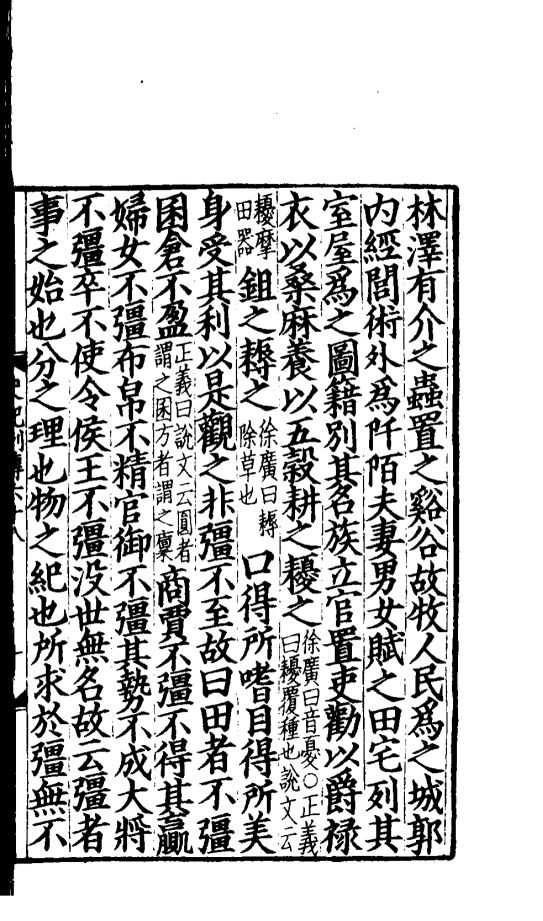 林澤有介之蟲置之谿谷故牧人民爲之城郭
内經閭術外爲阡陌夫妻男女賦之田宅列其
室屋爲之圖籍別其名族立官置吏勸以爵禄
衣以桑麻養以五穀耕之耰之徐廣曰音憂○正義曰耰覆種也說文云
耰摩田器鉏之耨之徐廣曰耨除草也口得所嗜目得所美
身受其利以是觀之非彊不至故曰田者不彊
囷倉不盈正義曰說文云圓者謂之囷方者謂之廩商賈不彊不得其贏
婦女不彊布帛不精官御不彊其勢不成大將
不彊卒不使令侯王不彊没世無名故云彊者
事之始也分之理也物之紀也所求於彊無不